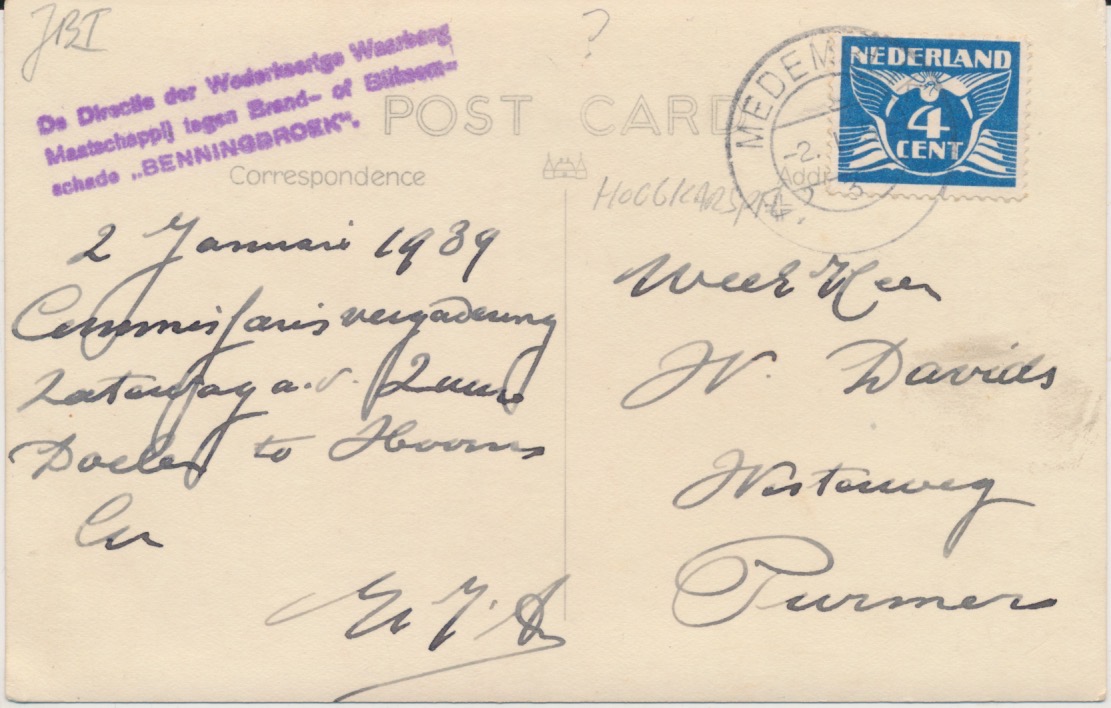 JBI
?
De Directie der Wederkeerige Waarborg
Maatschappij tegen Brand- of Bliksem-
schade „BENNINGBROEK".
POST CARD
Correspondence
HOOGKARSPEL
MEDEM
-2.
NEDERLAND
4
CENT
2 Januari 1939
Commissarisvergadering
Zaterdag a.s. 2 uur
Doelen te Hoorn
WeelEd Heer
W. Davids
Westerweg
Purmer